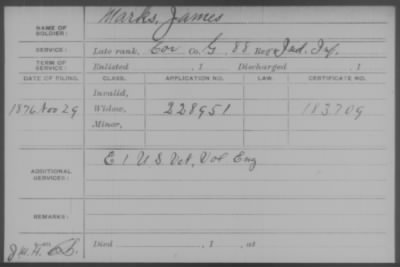 NAME OF SOLDIER: Marks, James
SERVICE: Late rank, Cor Co. G, 88 Reg't Ind. Inf.
TERM OF SERVICE: Enlisted , 1 Discharged , 1
DATE OF FILING. CLASS. APPLICATION NO. LAW. CERTIFICATE NO.
Invalid,
1876 Nov 29 Widow, 228951 183.709
Minor,
ADDITIONAL SERVICES: E 1 U S Vet, Vol Eng
REMARKS:
J.M.H. Died , 1 , at